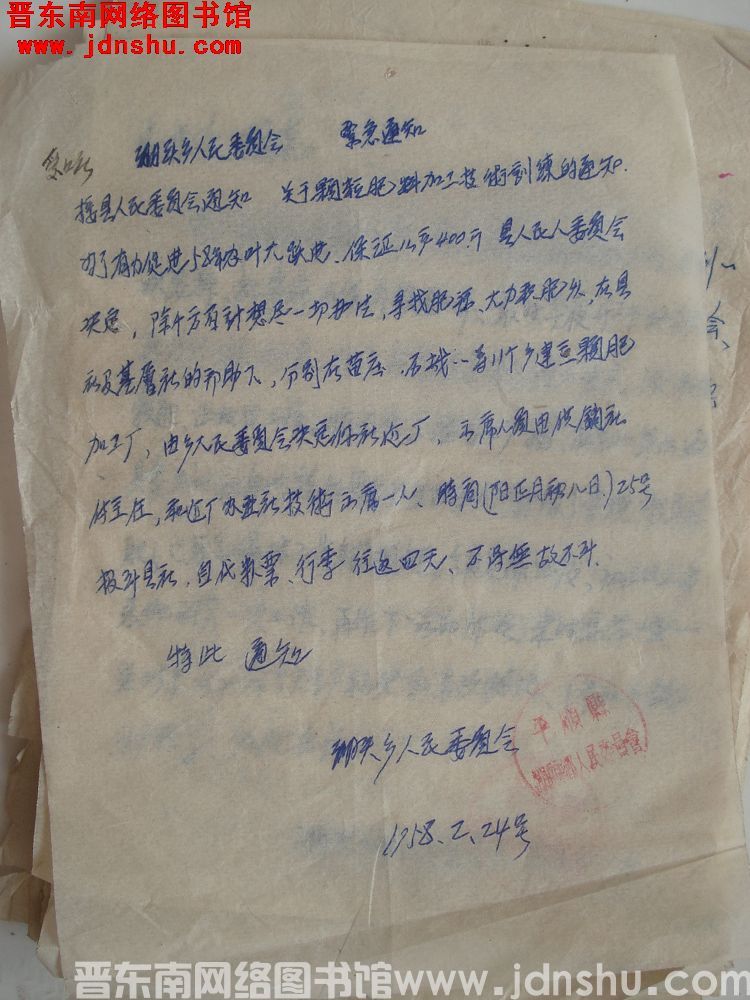 晋东南网络图书馆
www.jdnshu.com
人民委员会 紧急通知
接县人民委员会通知 关于颗粒肥料加工技術訓練的通知.
为了有力促进58年农叶大跃进、保证亩产400斤 县人民人委员会
决定,除千方百計想尽一切办法,寻找肥源、大力积肥外,在县
社及基层社的邦助下,分别在苗庄、石城……等11个乡建立颗肥
加工厂,由乡人民委员会决定你社建厂,出席人員由供銷社
付主任,和建厂农业社技術出席一人、時间(旧正月初八日)25号
报到县社,自代粮票、行李 往返四天、不得無故不到.
特此 通知
乡人民委员会
平順縣
人民委員會
1958.2.24号
晋东南网络图书馆www.jdnshu.com